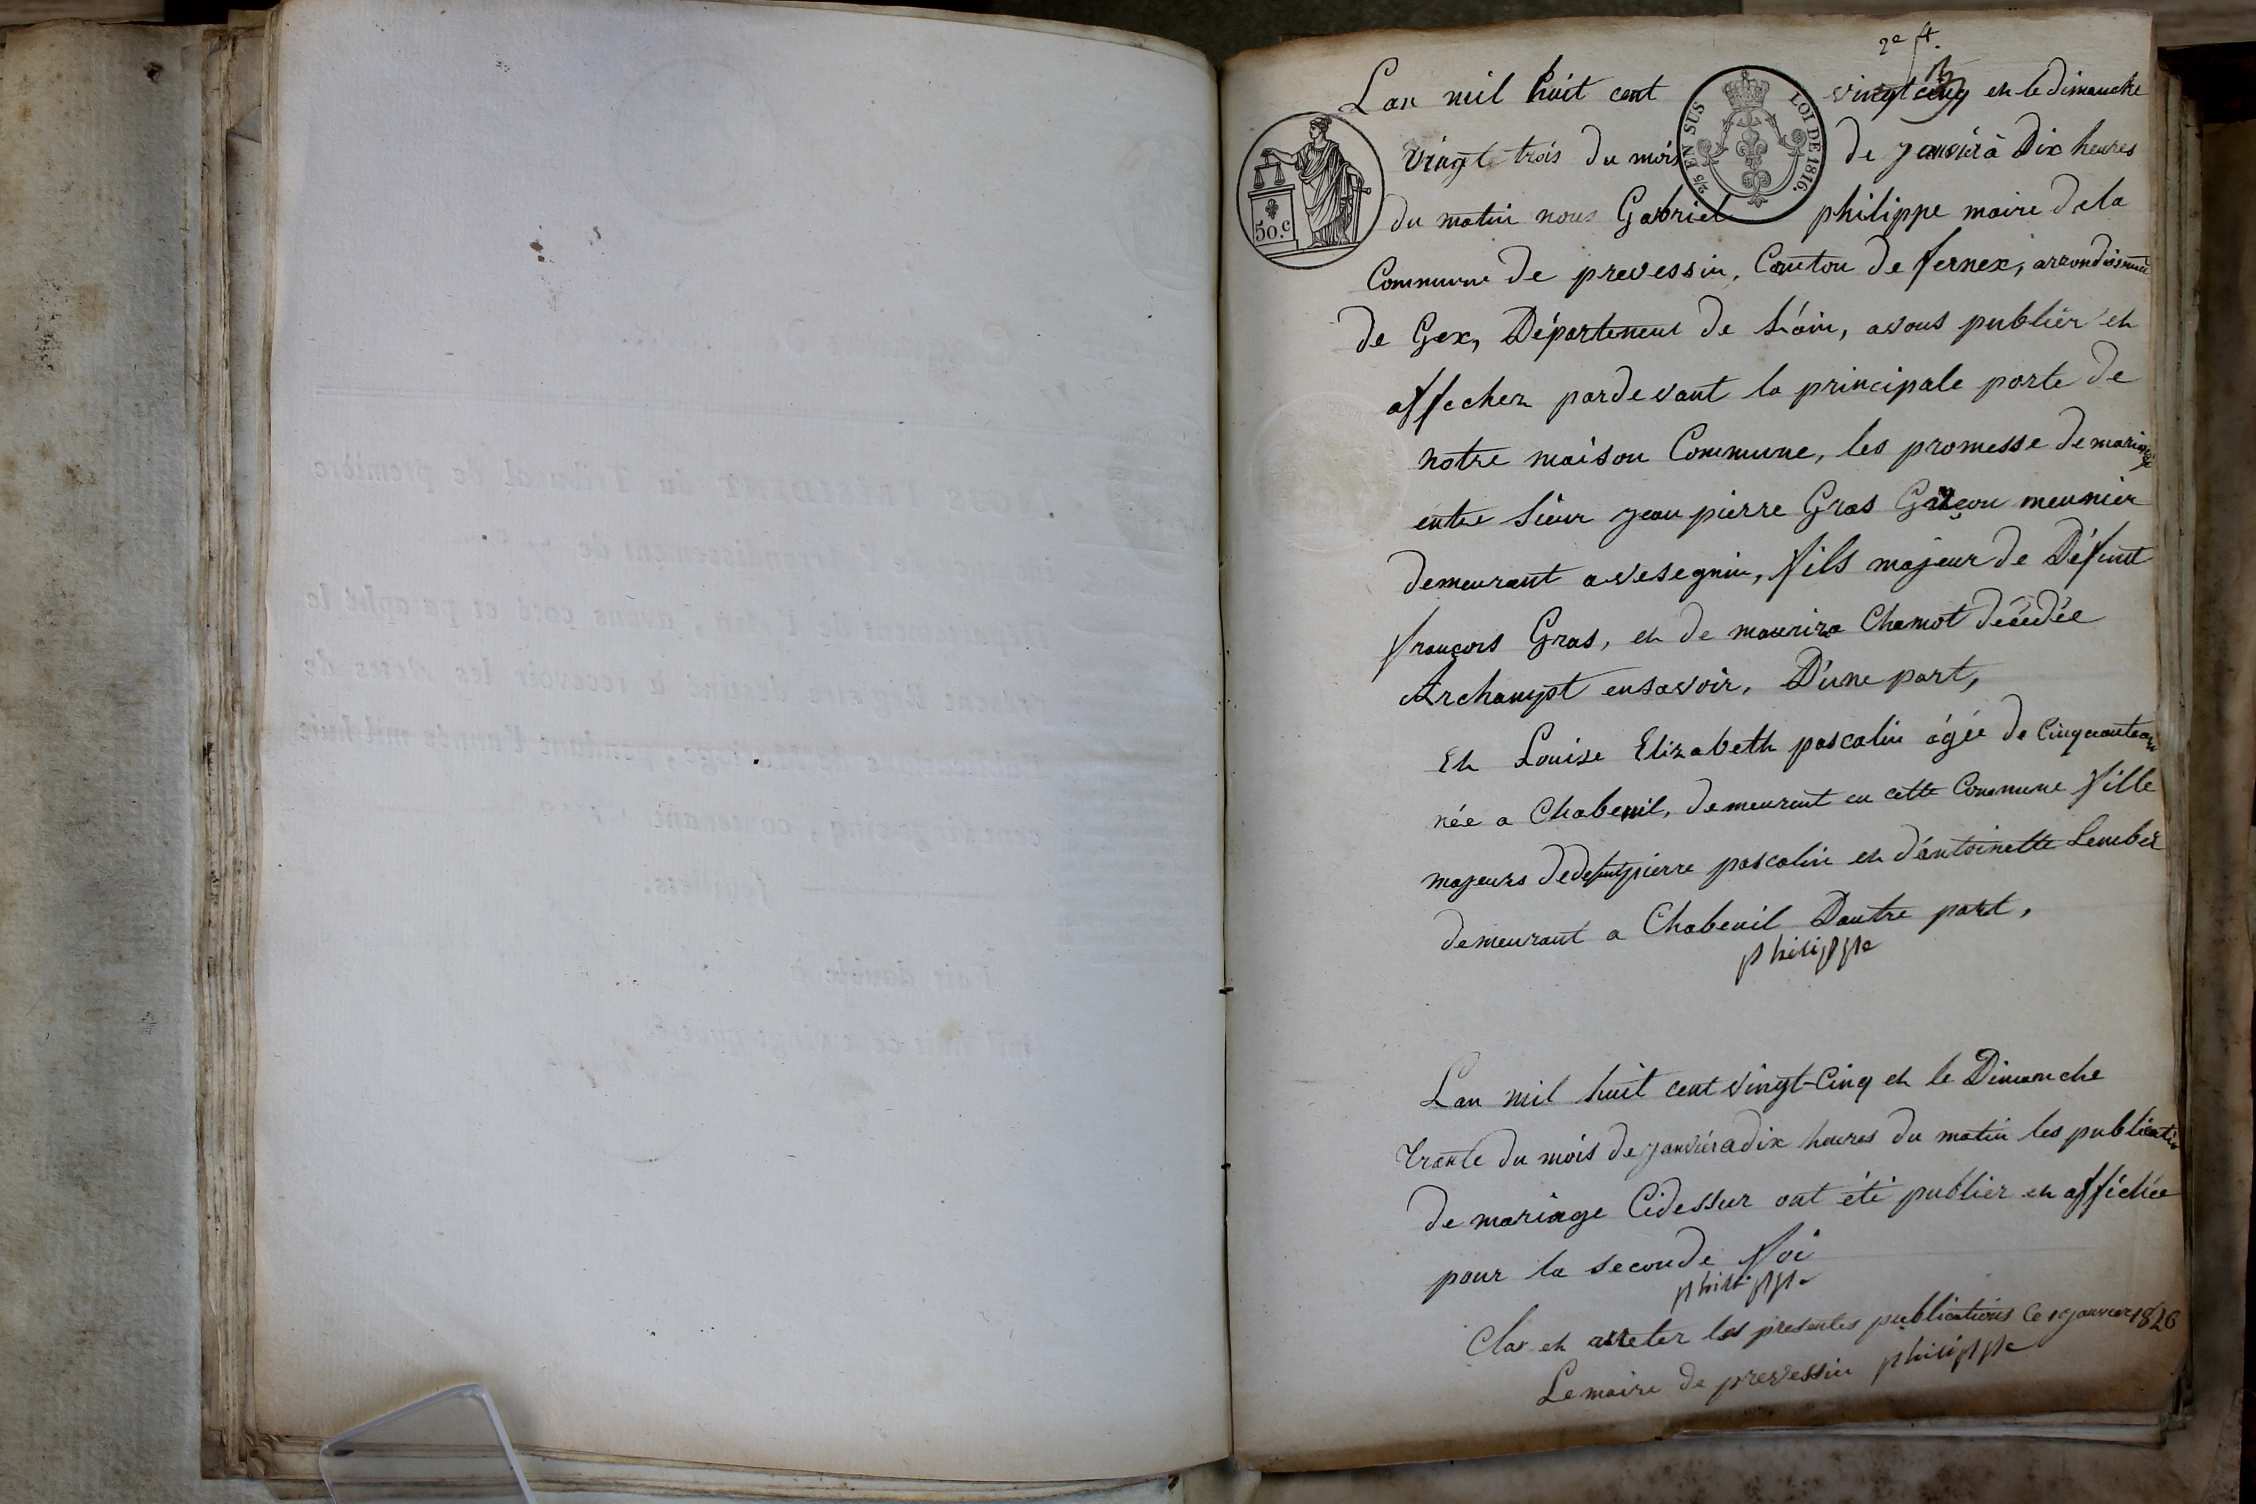 2e ft.
Lan mil huit cent vingt cinq et le dimanche
2/5 EN SUS LOI DE 1816.
50.c
vingt trois du mois de janvier à Dix heures
du matin nous Gabriel philippe maire dela
Commune de prevessin, Canton de fernex, arrondissment
de Gex, Département de L'ain, avons publier et
afficher pardevant la principale porte de
notre maison Commune, les promesse de mariage
entre Sieur jean pierre Gras Garçon meunier
demeurant a vesegnin, fils majeur de Défunt
françois Gras, et de mauriza Chamot décédée
Archampt ensavoir, D'une part,
Et Louise Elizabeth pascalin âgée de Cinquanteans
née a Chabeuil, demeurant en cette Commune fille
majeurs dedefunt pierre pascalin et d'antoinette Lember
demeurant a Chabeuil Dautre part,
philippe
Lan mil huit cent vingt-Cinq et le Dimanche
trante du mois de janvier a dix heures du matin les publication
de mariage Cidessur ont été publier et affichée
pour la seconde foi
philippe
Clos et arreter les presentes publications Ce 1 janvier 1826
Lemaire de prevessin philippe